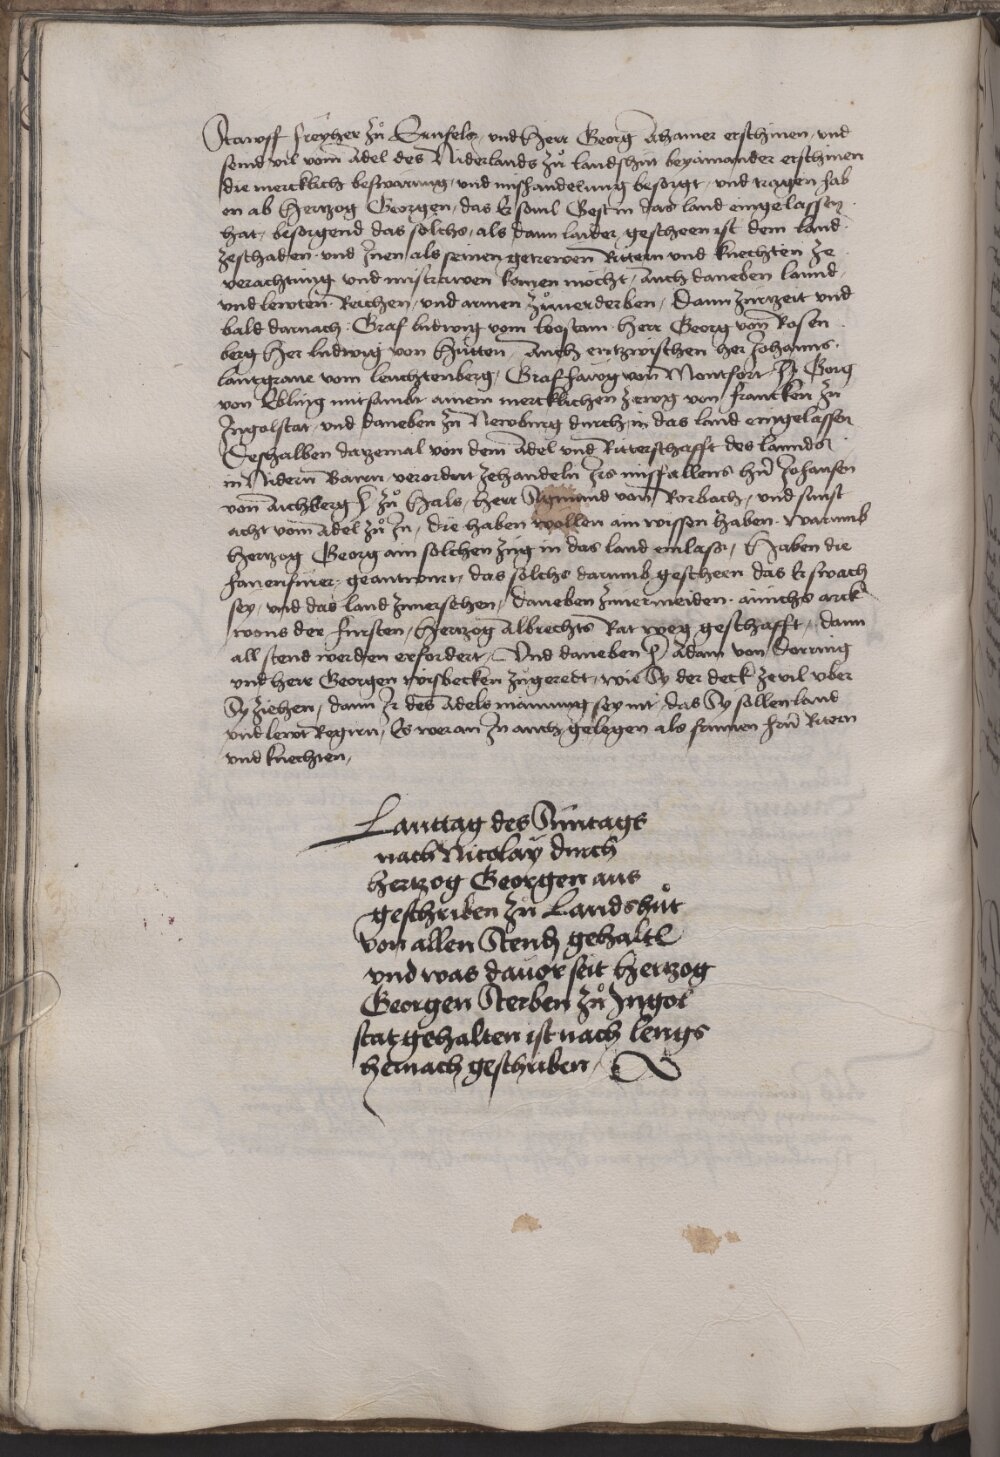 Stawff freyher zů Ernfels, vnd Herr Georg Ahamer erschinen, vnd
seind vil vom Adel des Niderlands zů landshůt beyainander erschinen
die mercklich beswärung, vnd mishandelung besorgt, vnd tragen hab
en ab Hertzog Georgen, das Er souil Gest in das land eingelassen
hat, besorgend das solchs, als dann laider, gescheen ist dem land
zeschaden, vnd Jnen als seinen getrewen Rittern vnd knechten ze
verachtung vnd mistrawen komen möcht, Auch daneben lannd,
vnd lewten, Reichen, vnd armen zuuerderben, Dann zurzeit vnd
bald darnach, Graf ludwig vom leostain, herr Georg von Rosen
berg Her ludwig von Hutten, Auch entzwischen her Johanns,
lantgraue vom leuchtenberg, Graf haug von Montfort, H Gorg
von Ebling mitsambt ainem mercklichen zewg von francken zu
Jngolstat, vnd daneben zu Newburg durch, in das land eingelassen
Deshalben dazemal von dem Adel vnd Ritterschafft des lanndes
in Nidern Bairn verordnt zehandeln Jrs missfallens her Johansen
von Aichberg H zů Hals, herr Sigmund von Rorbach, vnd sunst
acht vom Adel zů Jn, die haben wöllen ain wissen haben, warumb
Hertzog Georg ain solchen zug in das land einlass, Haben die
geantwurt, das solchs darumb gescheen das Er swach
sey, vnd das land zuuersehen, daneben zuuermeiden, ainichs arck
wons der fursten, Hertzog Albrechts Rat weg geschafft, dann
all stend werden erfordert, Vnd daneben H Adam von Torring
vnd herr Georgen wisbecken zůgeredt, wie Sy der deck ze vil vber
Sy ziehen, dann Jr des Adels mainung sey nit, das Sy sollen land
vnd lewt Regirn, Es wer an Jn auch gelegen als frumen Rittern
vnd knechten,
Lanttag des Suntags
nach Nicolay durch
hertzog Georgen aus
geschriben zu Landshůt
von allen Stend gehaltn
vnd was dauor seit hertzog
Georgen Sterben zů Jngol
stat gehalten ist nach lengs
hernach geschriben,